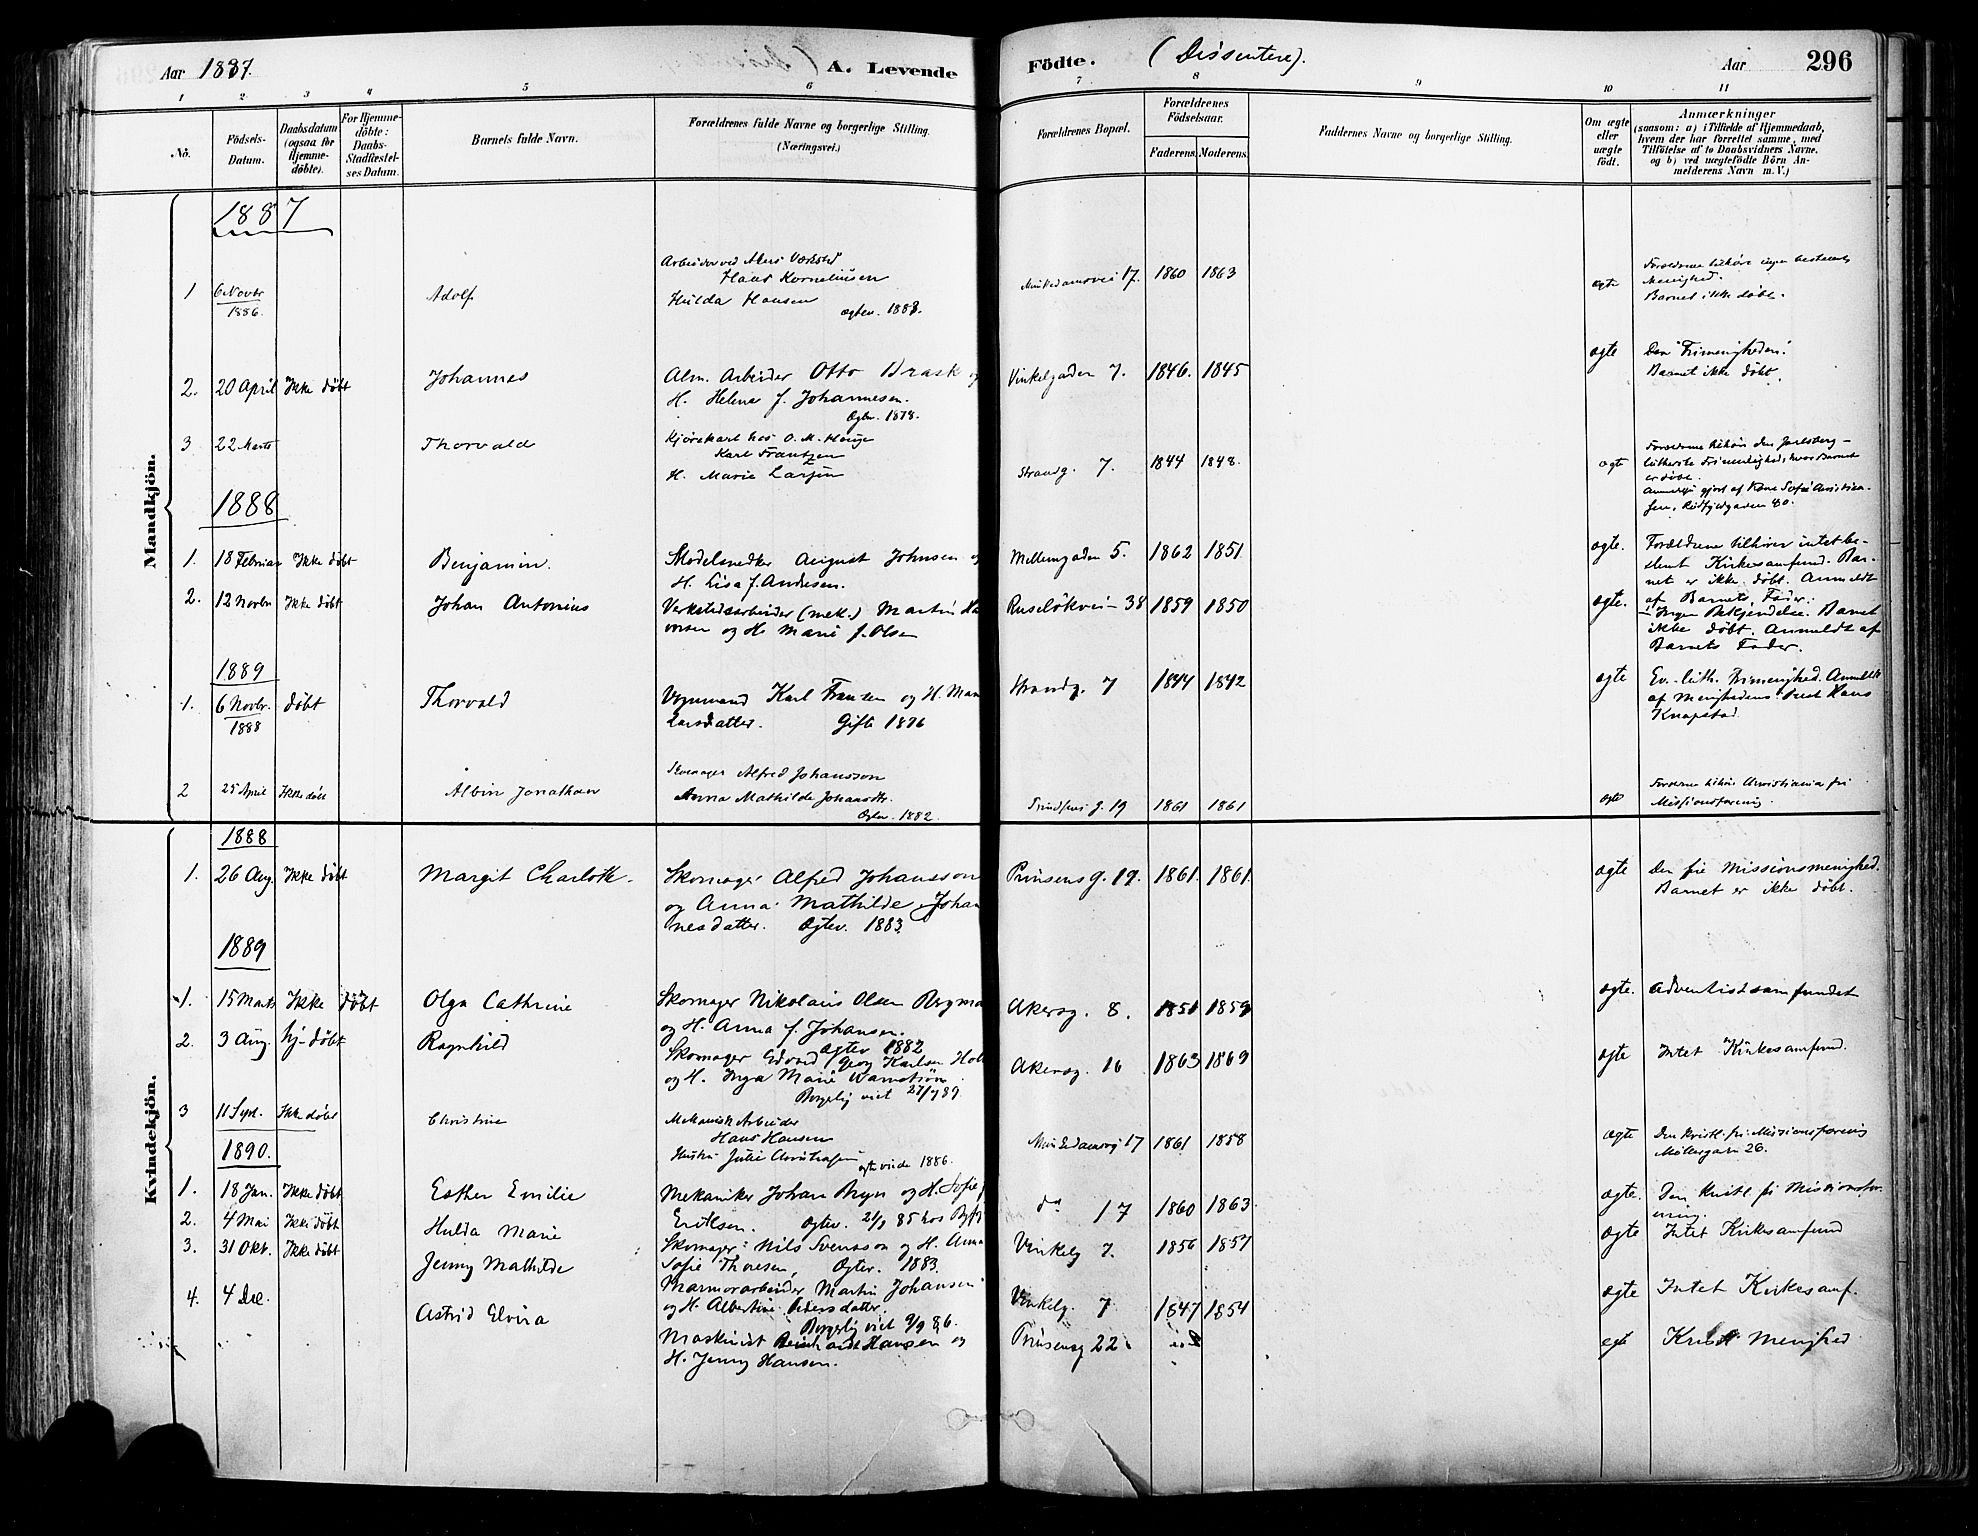 Aar 1887. A. Levende Födte. (Dissentere). Aar 296
1 2 3 4 5 6 7 8 9 10 11
No.
Födsels-
Datum.
Daabsdatum
(ogsaa for
Hjemme-
döbte).
For Hjemme-
döbte:
Daabs-
Stadfæstel-
ses Datum.
Barnets fulde Navn.
Forældrenes fulde Navne og borgerlige Stilling.
(Næringsvei.)
Forældrenes Bopæl.
Forældrenes
Födselsaar.
Faderens. Moderens.
Faddernes Navne og borgerlige Stilling.
Om ægte
eller
uægte
født.
Anmærkninger
(saasom: a) i Tilfælde af Hjemmedaab,
hvem der har forrettet samme, med
Tilföielse af to Daabsvidners Navne.
og b) ved uægtefödte Börn An-
melderens Navn m. V.)
Mandkjön.
1887
1 6 Novbr 1886. Adolf
Arbeider ved Akers Værksted
Hans Korneliusen
Hulda Hansen
Ægtev. 1883.
Munkedamsvei 17. 1860 1863 ægte
Forældrene tilhøre ingen bestemt
Menighed.
Barnet ikke døbt.
2. 20 April Ikke døbt Johannes
Alm. Arbeider Otto Brask og
H. Helene f. Johannesen.
Ægtev. 1878.
Vinkelgaden 7. 1846. 1845 ægte
Den "Frimenigheden".
Barnet ikke døbt.
3 22 Marts Thorvald
Kjørekarl hos O. M. Hauge
Karl Frantzen
H. Marie Larsen
Strandg. 7. 1844 1848. ægte
Forældrene tilhøre den Jarlsberg-
lutherske Frimenighed, hvor Barnet
er døbt.
1888
1. 18 Februar Ikke døbt Benjamin.
Modelsnedker August Johnsen og
H. Lisa f. Andresen.
Mellemgaden 5. 1862 1851 ægte.
Forældrene tilhører intet be-
stemt Kirkesamfund. Bar-
net er ikke døbt. Anmeldt
af Barnets Fader.
2. 12 Novbr Ikke døbt Johan Antonius
Verkstedsarbeider (mek.) Martin Ha
og H. Marie f. Olsen
Ruseløkvei 38 1859 1850 ægte.
Ingen Bekjendelse. Barnet
ikke døbt. Anmeldt af
Barnets Fader.
1889
1. 6 Novbr. 1888 døbt Thorvald
Vognmand Karl Fransen og H. Mari
Larsdatter. Gifte 1876
Strandg. 7 1844 1842 ægte
Ev.-luth. Frimenighed. Anmeldt
af Menighedens Prest Hans
Knapstad.
2 25 April Ikke døbt Albin Jonathan
Skomager Alfred Johansson
Anna Mathilde Johansdtr.
Ægtev. 1882.
Prindsens g. 19 1861 1861 ægte
Forældrene tilhøre Christiania fri
Missionsforening.
Kvindekjön.
1888
1. 26 Aug. Ikke døbt Margit Charlotte.
Skomager Alfred Johansson
og Anna Mathilde Johan
nesdatter. Ægtev. 1883.
Prinsens g. 19. 1861. 1861. ægte
Den frie Missionsmenighed.
Barnet er ikke døbt.
1889
1. 15 Marts Ikke døbt Olga Cathrine
Skomager Nikolaus Olsen Bergma
og H. Anna f. Johansen.
Ægtev 1882
Akersg. 8. 1851 1859 ægte. Adventistsamfundet
2. 3 Aug. hj.-døbt Ragnhild
Skomager Edvard Georg Karlsen Hol
og H. Inga Marie
Borgerlig viet 27/7 89.
Akersg. 16 1863 1869 ægte Intet Kirkesamfund.
3 11 Sept. Ikke døbt Christine
Mekanisk Arbeider
Hans Hansen
Hustru Julie Christiansen
Ægteviede 1886.
Munkedamsvei 17 1861 1858 ægte
Den kristl. fri Missionsforening
Møllergaden 26.
1890.
1. 18 Jan. Ikke døbt Esther Emilie
Mekaniker Johan Bryn og H. Sofie f.
Eriksen. Ægtev. 85 hos Byfg
do 17 1860 1863 ægte.
Den kristl fri Missionsfor-
ening.
2. 4 Mai Ikke døbt Hulda Marie
Skomager Nils Svensson og H. Anna
Sofie Thoresen, Ægtev. 1883.
Vinkelg 7. 1856 1857 ægte Intet Kirkesamfund
3. 31 Okt. Ikke døbt Jenny Mathilde
Marmorarbeider Martin Johansen
og H. Albertine Pedersdatter.
Borgerlig viet 9/9 86.
Vinkelg. 7 1847 1854 ægte Intet Kirkesamf.
4. 4 Dec. Astrid Elvira
Maskinist Hansen og
H. Jenny Hansen.
Prinsensg 22 Kristl Menighed